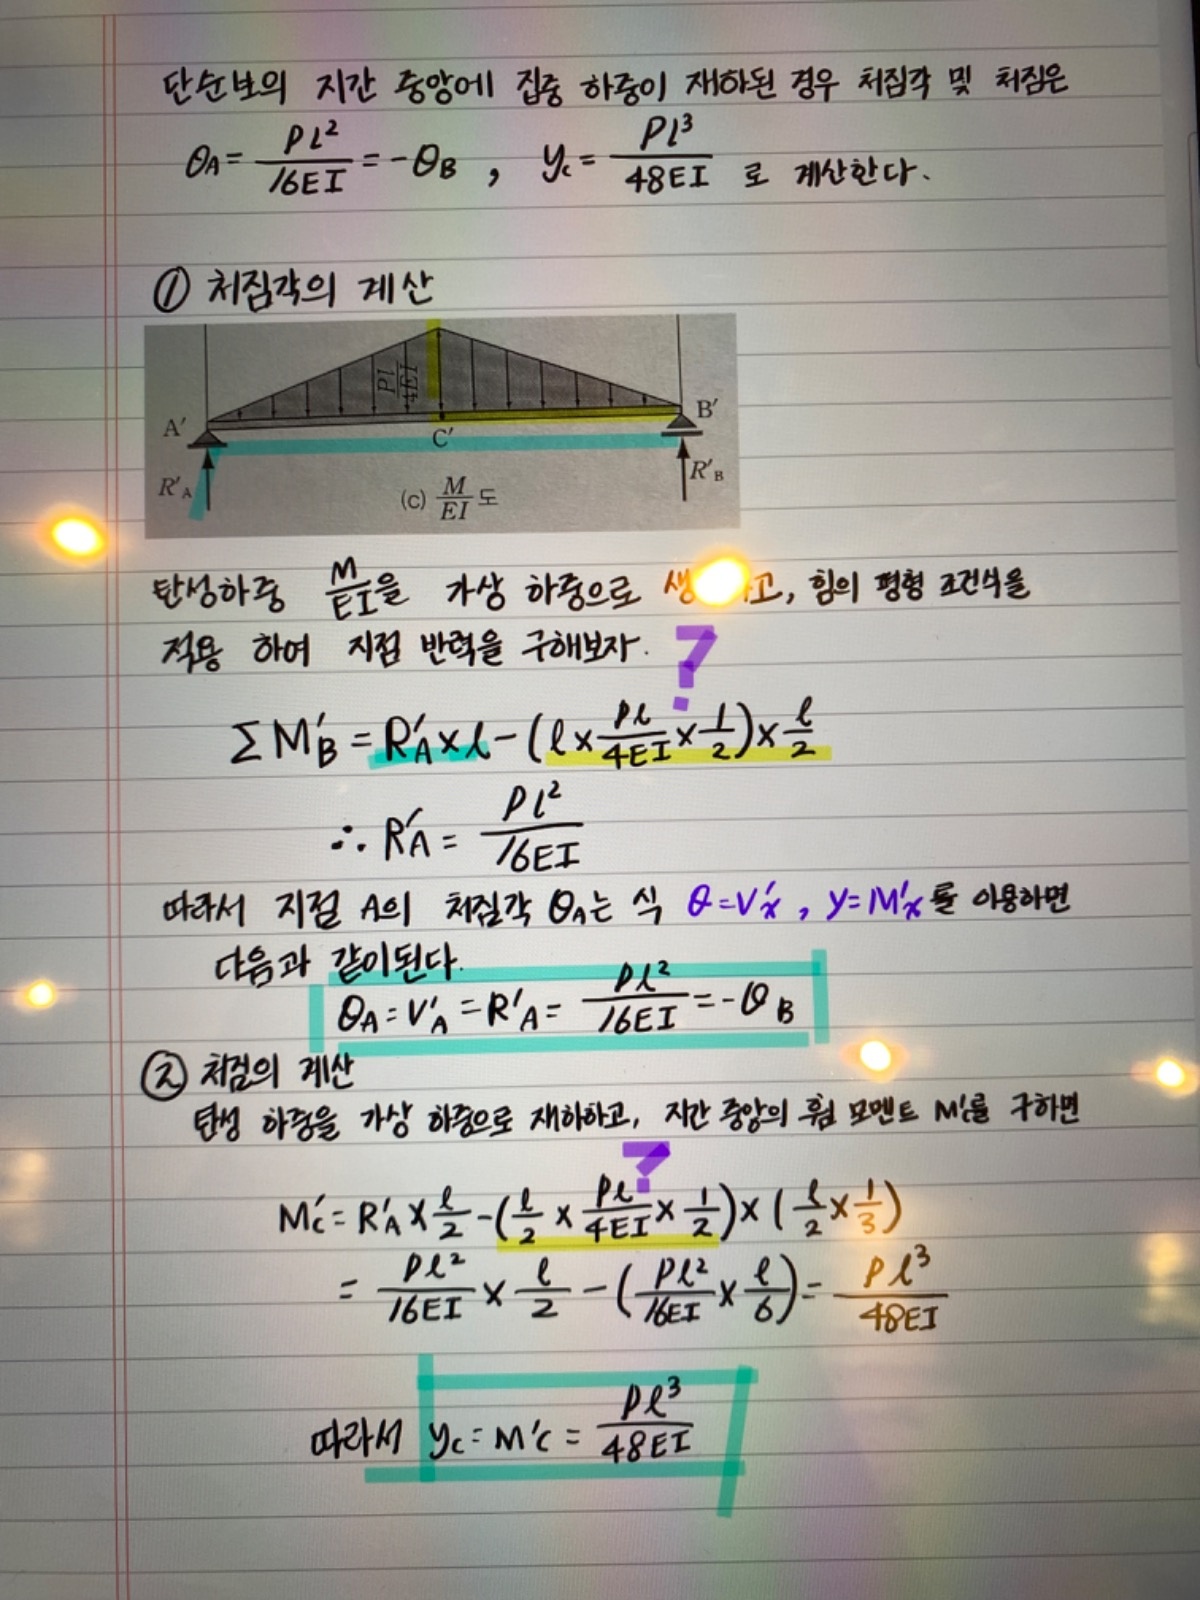 단순보의 지간 중앙에 집중 하중이 재하된 경우 처짐각 및 처짐은
θA = Pl²/16EI = -θB , yc = Pl³/48EI 로 계산한다.
① 처짐각의 계산
Pl/4EI
A' C' B'
R'A R'B
(c) M/EI 도
탄성하중 M/EI을 가상 하중으로 힘의 평형 조건식을
적용 하여 지점 반력을 구해보자. ?
ΣM'B = R'A×l-(l×Pl/4EI×1/2)×l/2
∴ R'A = Pl²/16EI
따라서 지점 A의 처짐각 θA는 식 θ=V'x , y=M'x를 이용하면
다음과 같이된다.
θA=V'A=R'A= Pl²/16EI =-θB
② 처짐의 계산
탄성 하중을 가상 하중으로 재하하고, 지간 중앙의 휨 모멘트 를 구하면
?
M'c=R'A×l/2-(l/2×Pl/4EI×1/2)×(l/2×1/3)
= Pl²/16EI × l/2 -(Pl²/16EI × l/6)= Pl³/48EI
따라서 yc=M'c= Pl³/48EI